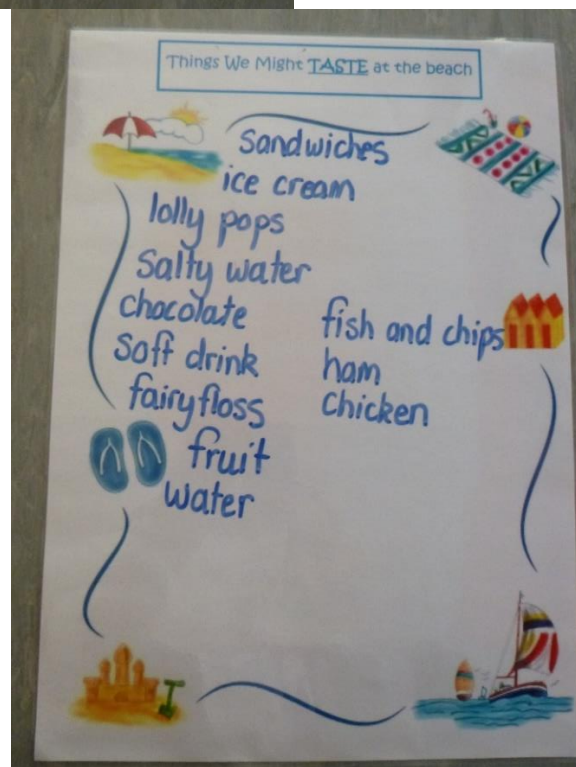 Things We Might TASTE at the beach
Sandwiches
ice cream
lolly pops
Salty water
chocolate
Soft drink
fairyfloss
fruit
water
fish and chips
ham
Chicken